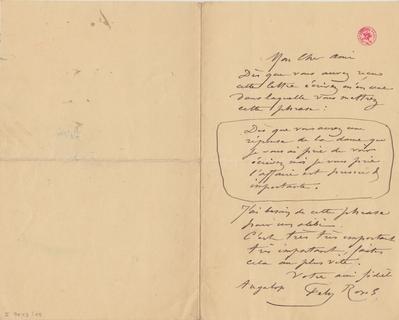 Mon Cher ami
Dès que vous aurez reçu
cette lettre écrivez m'en une
dans laquelle vous mettrez
cette phrase :
Dès que vous aurez une
réponse de la dame que
je vous ai prié de voir
écrivez moi je vous prie
l'affaire est pressée &
importante.
J'ai besoin de cette phrase
pour un alibi.
C'est très très important
très important, faites
cela au plus vite.
Votre ami fidèle
Rops